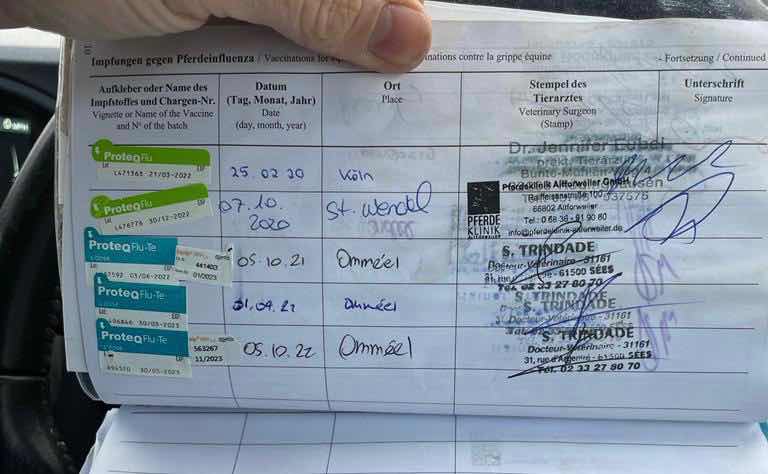 10
Impfungen gegen Pferdeinfluenza / Vaccinations for inations contre la grippe équine - Fortsetzung / Continued
Aufkleber oder Name des Impfstoffes und Chargen-Nr.
Vignette or Name of the Vaccine and N° of the batch
Datum
(Tag, Monat, Jahr)
Date
(day, month, year)
Ort
Place
Stempel des Tierarztes
Veterinary Surgeon
(Stamp)
Unterschrift
Signature
ProteqFlu
L471363 21/03-2022
25.02 20
Köln
Dr. Jennifer
ProteqFlu
L476776 30/12-2022
07.10. 2020
St. Wendel
PFERDE KLINIK
ALTFORWEILER
Pferdeklinik Altforweiler GmbH
Raiffeisenstraße 100
66802 Altforweiler
Tel.: 0 68 36 - 91 90 80
info@pferdeklinik-altforweiler.de
ProteqFlu-Te
03/06-2022
441403
01/2023
05.10.21
Omméel
S. TRINDADE
Docteur-Vétérinaire - 31161
61500 SÉES
Tél. 02 33 27 80 70
ProteqFlu-Te
30/03-2023
01.04.22
Omméel
S. TRINDADE
ProteqFlu-Te
L494520 30/05-2023
563267
11/2023
05.10.22
Omméel
S. TRINDADE
Docteur-Vétérinaire - 31161
31, rue d'Argentré - 61500 SÉES
Tél. 02 33 27 80 70